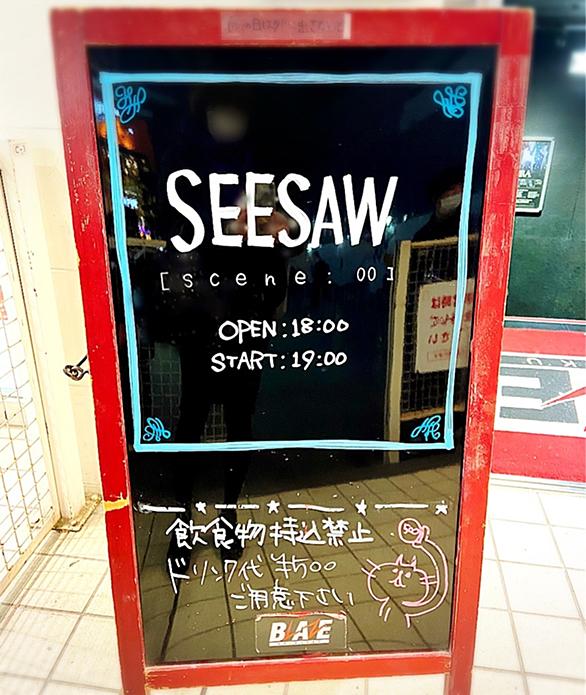 SEESAW
[scene: 00]
OPEN:18:00
START:19:00
飲食物持込禁止
ドリンク代 ¥500
ご用意下さい
BLAZE